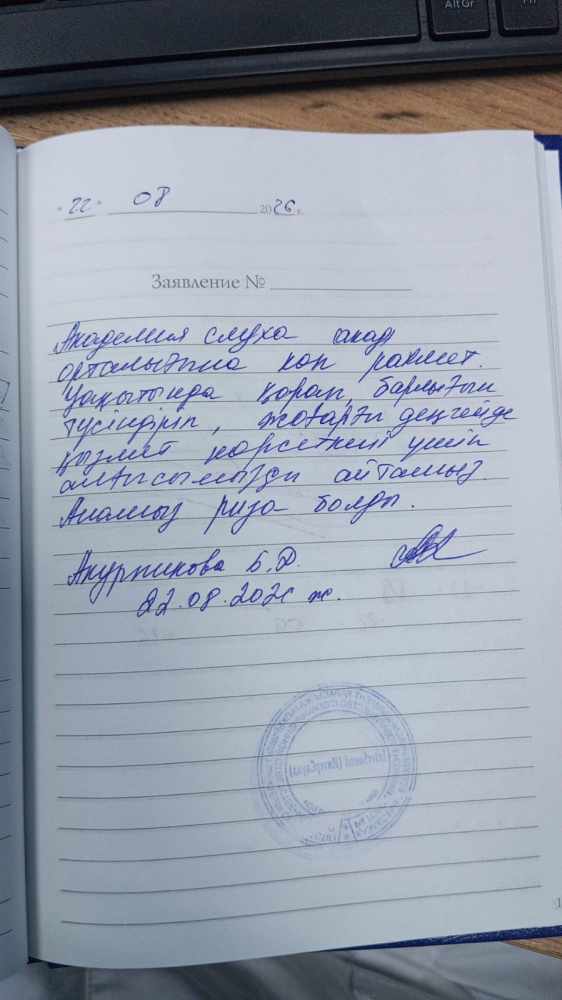 Alt Gr
"22" 08 2026 г.
Заявление №
Академия слуха
орталығына көп рахмет.
Уақытында қарап, барлығын
түсіндіріп, жоғарғы деңгейде
қызмет көрсеткені үшін
алғысымызды айтамыз.
Анамыз риза болды.
Акурпикова Б.Р.
22.08.2026 ж.